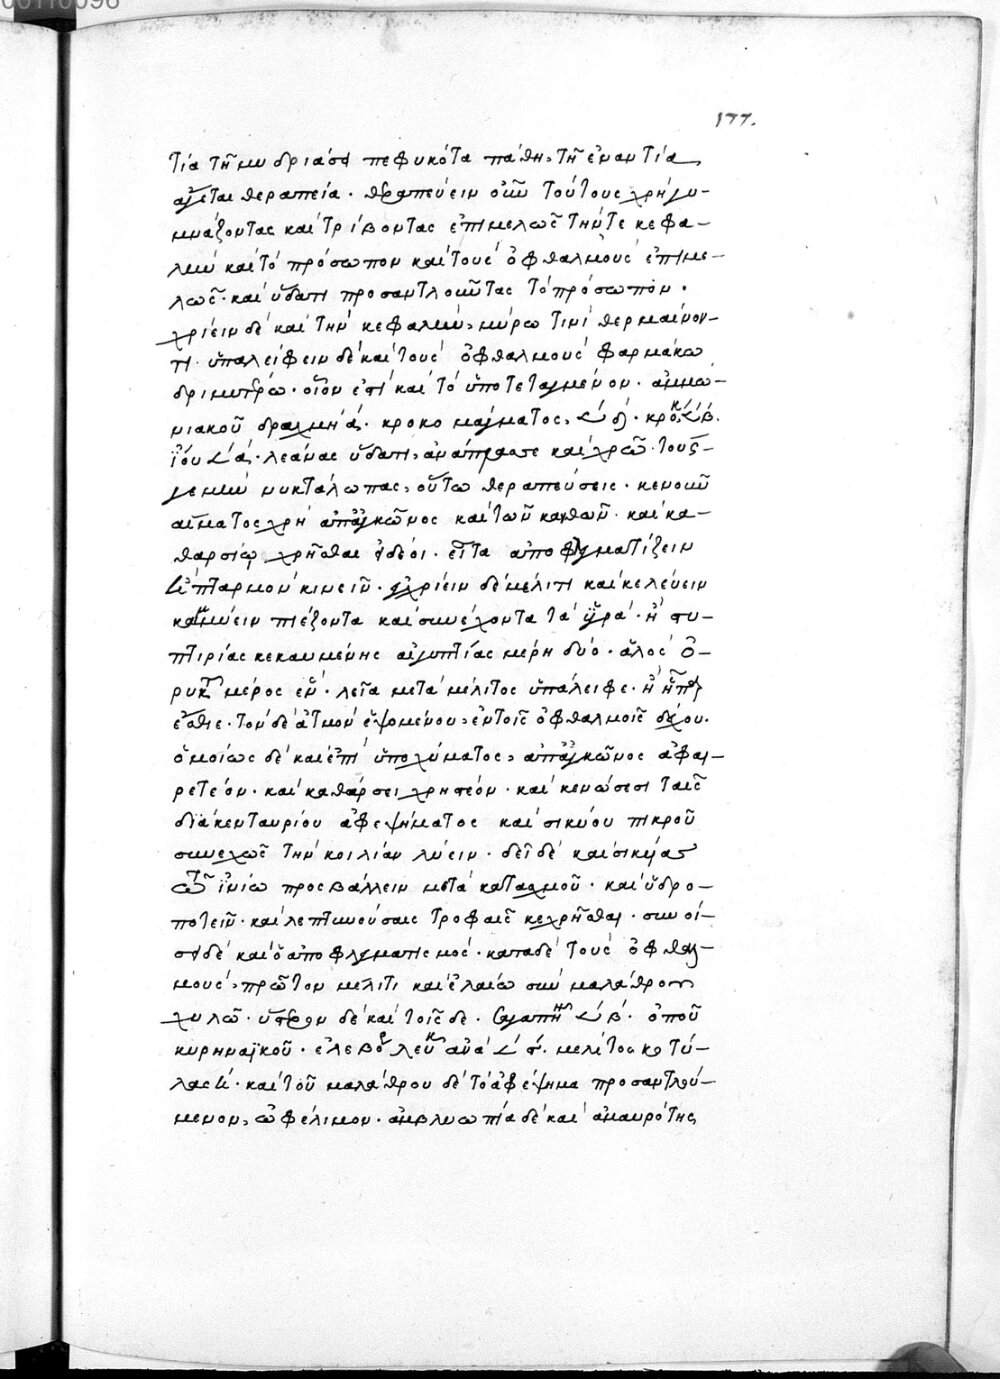 177.
τία τῆ μυδριάσει πεφυκότα πάθη, τῆ ἐναντία
ἄγεται θεραπεία· θεραπεύειν οὖν τούτους χρὴ γυ-
μνάζοντας καὶ τρίβοντας ἐπιμελῶς τήν τε κεφα-
λὴν καὶ τὸ πρόσωπον καὶ τοὺς ὀφθαλμοὺς ἐπιμε-
λῶς· καὶ ὕδατι προσαντλοῦντας τὸ πρόσωπον·
χρίειν δὲ καὶ τὴν κεφαλὴν, μύρω τινὶ θερμαίνον-
τι· ὑπαλείφειν δὲ καὶ τοὺς ὀφθαλμοὺς φαρμάκω
δριμυτέρω· οἷον ἐστὶ καὶ τὸ ὑποτεταγμένον· ἀμμω-
νιακοῦ δραχμὴ ά· κροκομάγματος, δ· κρόκ β.
ἰοῦ ά· λεάνας ὕδατι, ἀνάπλασσε καὶ χρῶ· τοὺς
γεμὴν νυκτάλωπας, οὕτω θεραπεύσεις· κενοῦν
αἵματος χρὴ ἀπἀγκῶνος καὶ τῶν κανθῶν· καὶ κα-
θαρσίω χρῆσθαι δέοι· εἶτα ἀποφλεγματίζειν
πταρμὸν κινεῖν· χρίειν δὲ μέλιτι καὶ κελεύειν
καμμύειν πιέζοντα καὶ συνέχοντα τὰ ὑγρά· ἢ στυ-
πτιρίας κεκαυμένης αἰγυπτίας μέρη δύο· ἅλος ὀ-
ρυκτ μέρος ἓν· λεῖα μετὰ μέλιτος ὑπάλειφε· ἢ ἧπαρ
ἔσθιε· τὸν δὲ ἀτμὸν ἑψομένου, ἐν τοῖς ὀφθαλμοῖς δέχου·
ὁμοίως δὲ καὶ ἐπὶ ὑποχύματος, ἀπἀγκῶνος ἀφαι-
ρετέον· καὶ καθάρσει χρηστέον· καὶ κενώσεσι ταῖς
διὰ κενταυρίου ἀφεψήματος καὶ σικύου πικροῦ
συνεχῶς τὴν κοιλίαν λύειν· δεῖ δὲ καὶ σικύας
τῶ ἰνίω προσβάλλειν μετὰ κατασχμοῦ· καὶ ὑδρο-
ποτεῖν· καὶ λεπτυνούσαις τροφαῖς κεχρῆσθαι· συνοί-
σει δὲ καὶ ὁ ἀποφλγματισμός· κατὰ δὲ τοὺς ὀφθαλ-
μοὺς, πρῶτον μέλιτι καὶ ἐλαίω σὺν μαλάθρου
χυλῶ· ὕστερον δὲ καὶ τοῖςδε· σαγαπην β· ὀποῦ
κυρηναϊκοῦ· ἐλεβόρ λευκ ἀνὰ ς· μέλιτος κοτύ-
λας · καὶ τοῦ μαλάθρου δὲ τὸ ἀφέψημα προσαντλού-
μενον, ὠφέλιμον· ἀμβλυωπία δὲ καὶ ἀμαυρότης